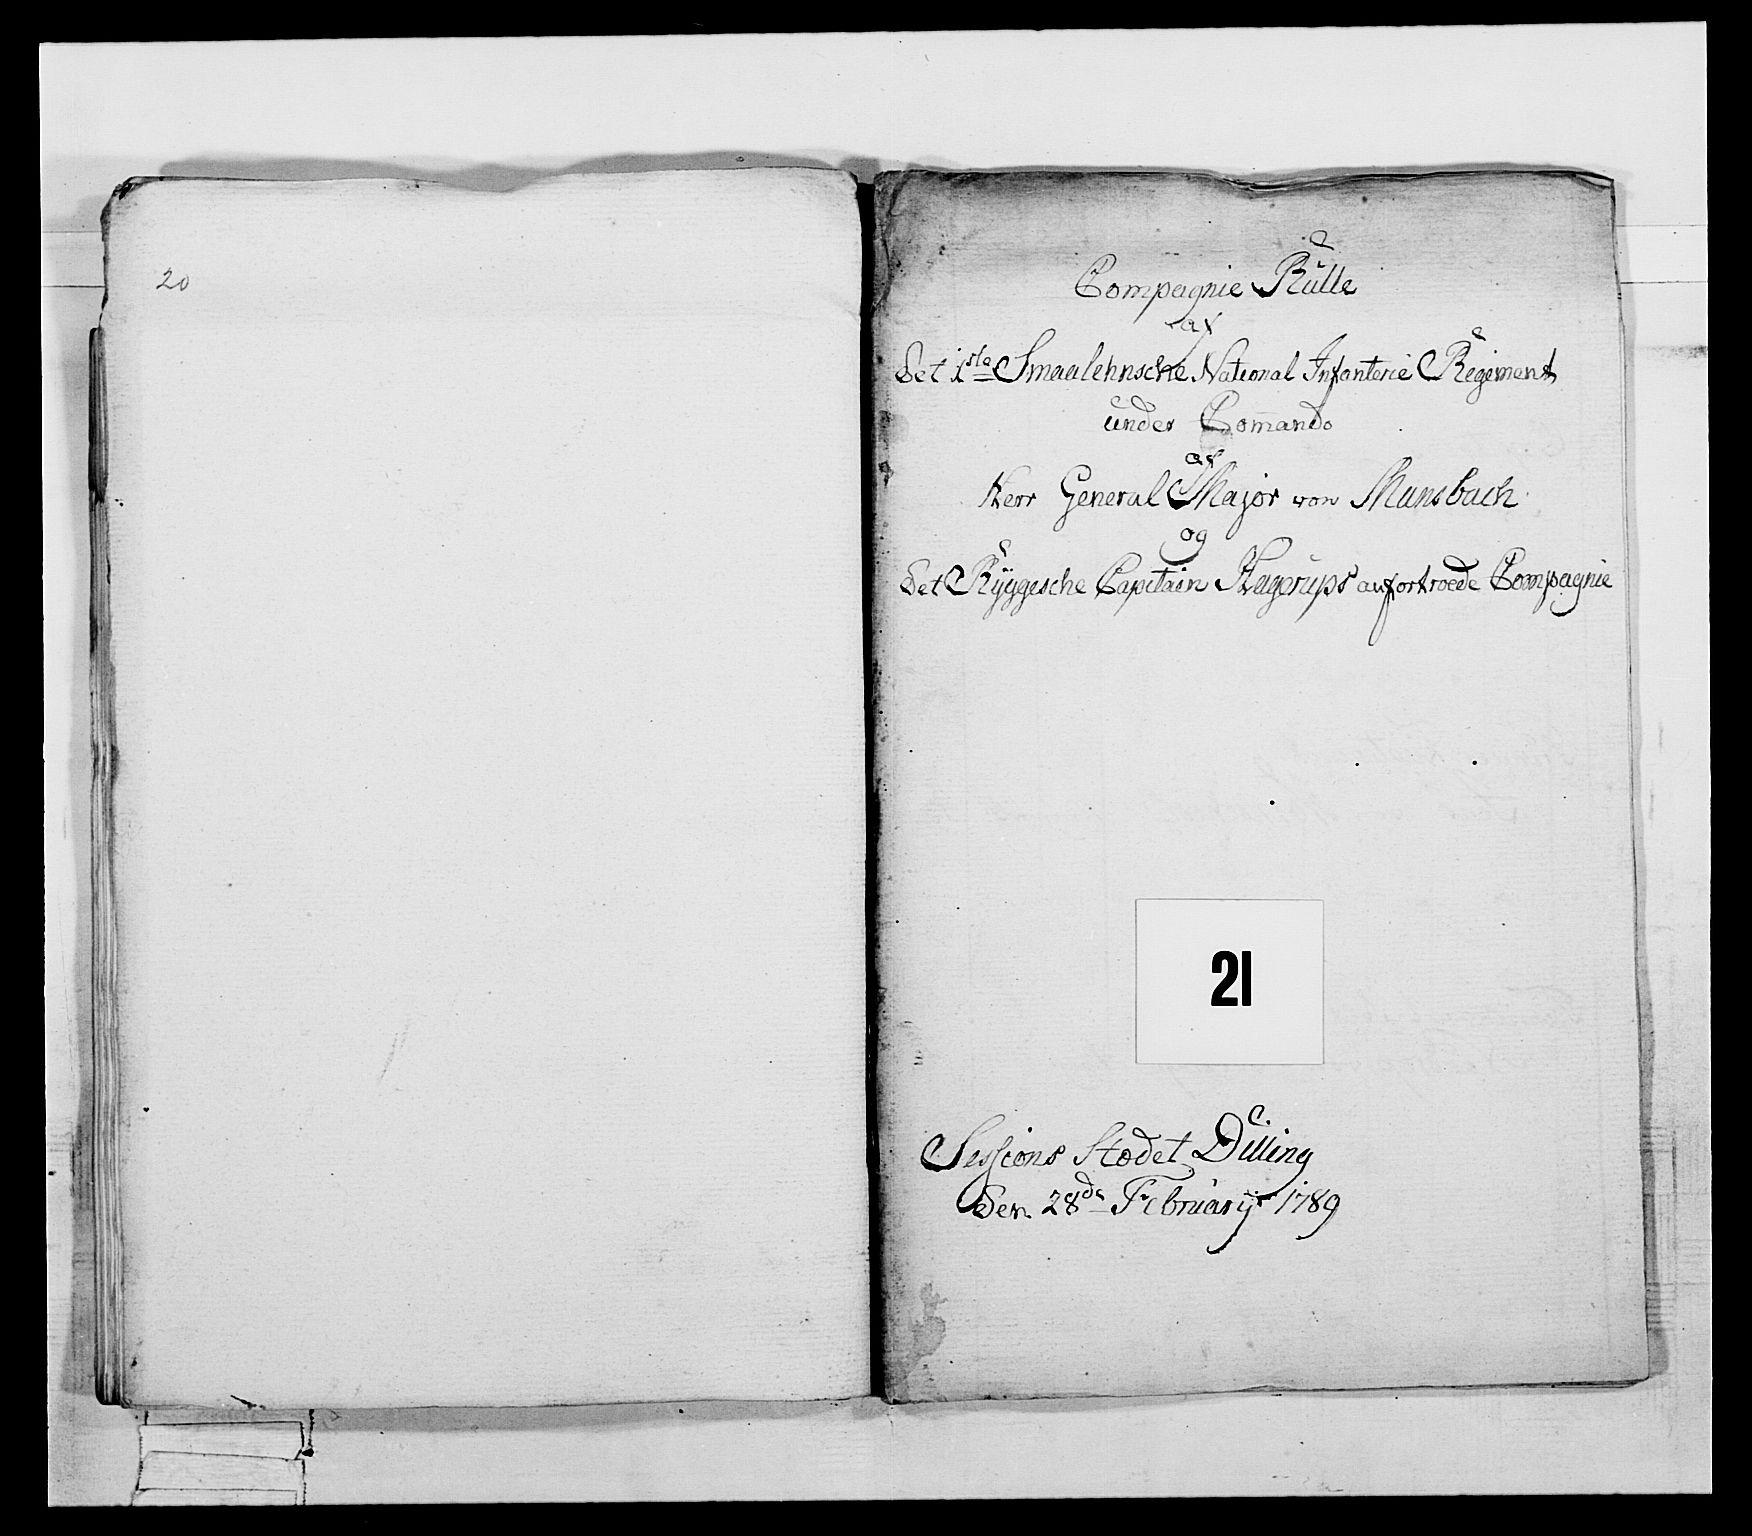 20
Compagnie Rulle
af
Det 1ste Smaalehnsche National Infanterie Regiment
under Com̄ando
af
Herr General Major von Mansbach
og
Det Ryggesche Capitain Hagerups anfortroede Compagnie
21
Sessions Stædet Dilling
Den 28de Februarÿ 1789